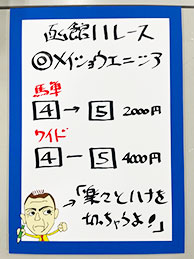 函館11レース
◎メイショウエニシア
馬単
4→5 2000円
ワイド
4―5 4000円
→「楽々とハナを
切っちゃうよ!」